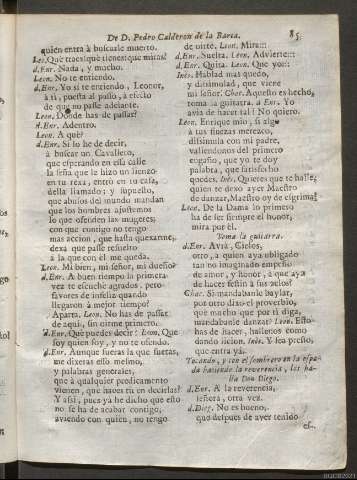 De D. Pedro Calderon de la Barca. 85
quien entra à buscarle muerto.
Leo. Què traes? què tienes? què miras?
d.Enr. Nada, y mucho.
Leon. No te entiendo.
d.Enr. Yo sì te entiendo, Leonor,
à ti, puesta al passo, à efecto
de que no passe adelante.
Leon. Donde has de passar?
d.Enr. Adentro.
Leon. A què?
d.Enr. Si lo he de decir,
à buscar un Cavallero,
que esperando en essa calle
la seña que le hizo un lienzo
en tu rexa, entrò en tu casa,
della llamado; y supuesto,
que abusos del mundo mandan
que los hombres ajustemos
lo que ofenden las mugeres;
con que contigo no tengo
mas accion, que hasta quexarme,
dexa que passe resuelto
à la que con èl me queda.
Leon. Mi bien, mi señor, mi dueño?
d.Enr. A buen tiempo la primera
vez te escuchè agrados, pero
favores de infelìz quando
llegaron à mejor tiempo?
Aparta. Leon. No has de passar
de aqui, sin oirme primero.
d.Enr. Què puedes decir? Leon. Que
soy quien soy, y no te ofendo.
d.Enr. Aunque fueras la que fueras,
me dixeras esso mesmo,
y palabras generales,
que à qualquier predicamento
vienen, què haces tù en decirlas?
Y assi, pues ya he dicho que esto
no se ha de acabar contigo,
aviendo con quien, no tengo
de oirte. Leon. Mira:::
d.Enr. Suelta. Leon. Advierte:::
d.Enr. Quita. Leon. Que yo:::
Inès. Hablad mas quedo,
y dissimulad, que viene
mi señor. Char. Aquesto es hecho,
toma la guitarra. d.Enr. Yo
avia de hacer tal? No quiero.
Leon. Enrique mio, si algo
à tus finezas merezco,
dissimula con mi padre,
valiendonos del primero
engaño, que yo te doy
palabra, que satisfecho
quedes. Inès. Quieres que te halle,
quien te dexò ayer Maestro
de danzar, Maestro oy de esgrima?
Leon. De la Dama lo primero
ha de ser siempre el honor,
mira por èl.
Toma la guitarra.
d.Enr. Avrà, Cielos,
otro, à quien aya obligado
tan no imaginado empeño
de amor, y honor, à que aya
de hacer festin à sus zelos?
Char. Si mandabanle baylar,
por otro dixo el proverbio,
què mucho que por tì diga,
mandabanle danzar? Leon. Esto
has de hacer, hallenos como
dando licion. Inès. Y sea presto,
que entra yà.
Tocando, y con el sombrero en la espada
haciendo la reverencia, los halla
Don Diego.
d.Enr. A la reverencia,
señora, otra vez.
d.Dieg. No es bueno,
que despues de aver tenido